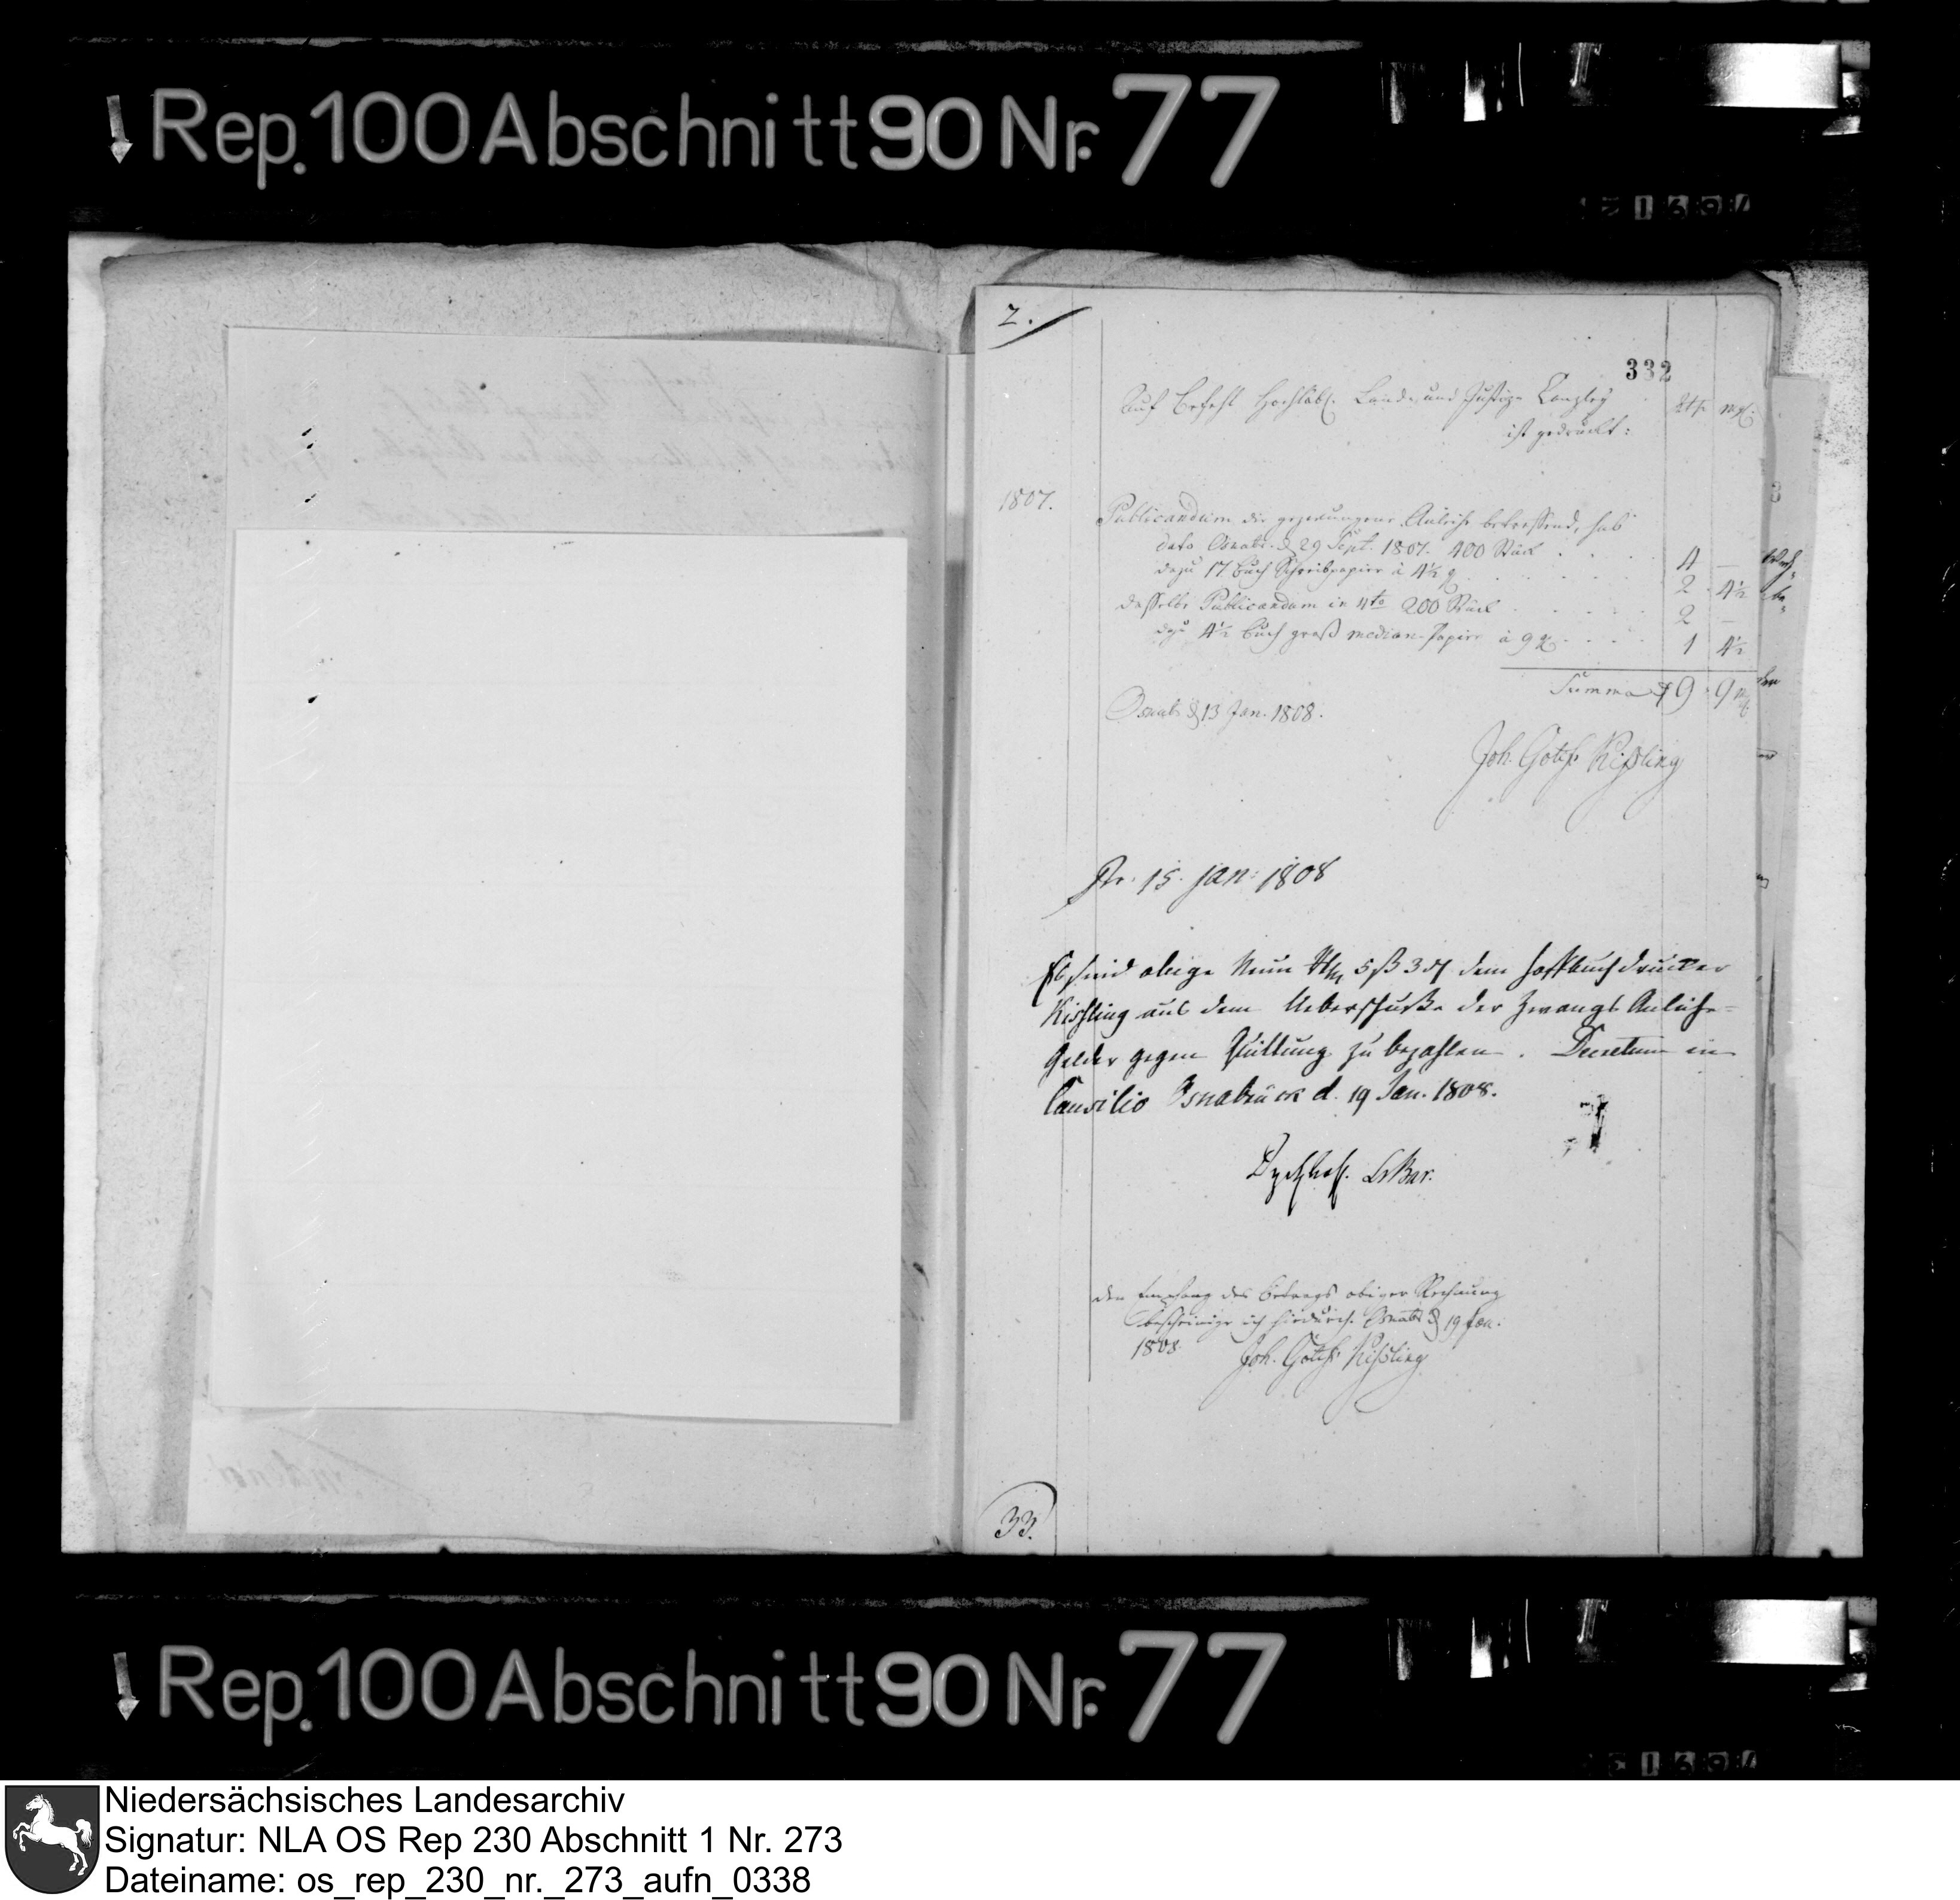 Rep. 100 Abschnitt 90 Nr. 77
2.
332
Auf Befehl Hochlöbl. Land- und Justiz- Canzley
ist gedruckt:
Rth mgl.
1807.
Publicandum die gezwungene Anleihe betreffend, sub
dato Osnabr. d 29 Sept. 1807. 400 Stück . . . . 4 —
dazu 17 Buch Schreibpapier à 4½ . . . . 2 4½
dasselbe Publicandum in 4to 200 Stück . . . . 2 —
dazu 4½ Buch groß median-Papier à 9 . . . . 1 4½
Summa 9 9
Osnabr. d 13 Jan. 1808.
Joh. Gottfr. Kißling
Pr. 15. jan: 1808
Es sind obige Neun Rth 5 ß 3 d dem Hofbuchdrucker
Kißling aus dem Ueberschuße der Zwangs Anleihe-
Gelder gegen Quittung zu bezahlen. Decretum in
Consilio Osnabrück d. 19 Jan. 1808.
Dyckhoff.
den Empfang des Betrags obiger Rechnung
bescheinige ich hierdurch. Osnabr. d 19 Jan.
1808. Joh. Gottfr. Kißling
33.
Rep. 100 Abschnitt 90 Nr. 77
Niedersächsisches Landesarchiv
Signatur: NLA OS Rep 230 Abschnitt 1 Nr. 273
Dateiname: os_rep_230_nr._273_aufn_0338